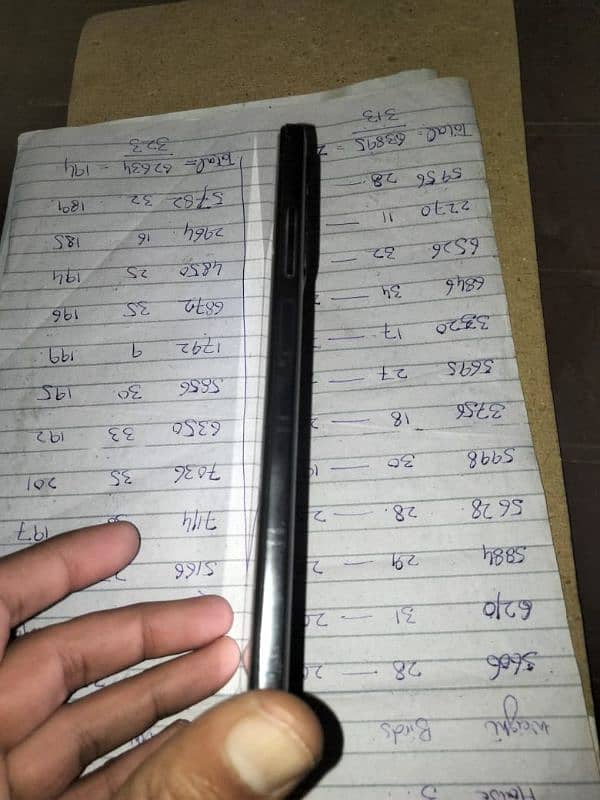 House 5.
Weight Birds
5606 28 —
6210 31 —
5884 29 —
5628 28. —
5998 30 —
3756 18 —
5695 27 —
3520 17 —
6846 34 —
6526 32 —
2270 11 —
5956 28 —
Total = 63895 =
313
5166
7114 197
7036 35 201
6350 33 192
5656 30 195
1792 9 199
6872 35 196
4850 25 194
2964 16 185
5782 32 189
Total = 62634 - 194
323